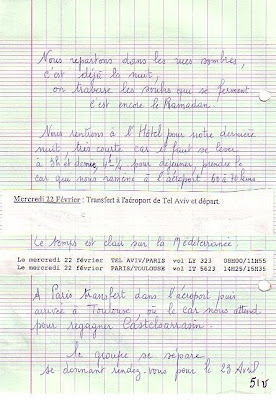 Nous repartons dans les rues sombres,
c'est déjà la nuit,
on traverse les souks qui se ferment
c'est encore le Ramadan.
Nous rentions à l'Hôtel pour notre dernière
nuit très courte car il faut se lever
à 3h et demie, 4h ½ pour déjeuner, prendre le
car qui nous ramène à l'aéroport 60 à 70 kms
Mercredi 22 Février : Transfert à l'aéroport de Tel Aviv et départ.
Le temps est clair sur la Méditerranée
Le mercredi 22 février TEL AVIV/PARIS vol LY 323 08H00/11H55
Le mercredi 22 février PARIS/TOULOUSE vol IT 5623 14H25/15H35
A Paris transfert dans l'aéroport puis
arrivée à Toulouse, où le car nous attend
pour regagner Castelsarrasin.
Le groupe se sépare
se donnant rendez-vous pour le 23 Avril